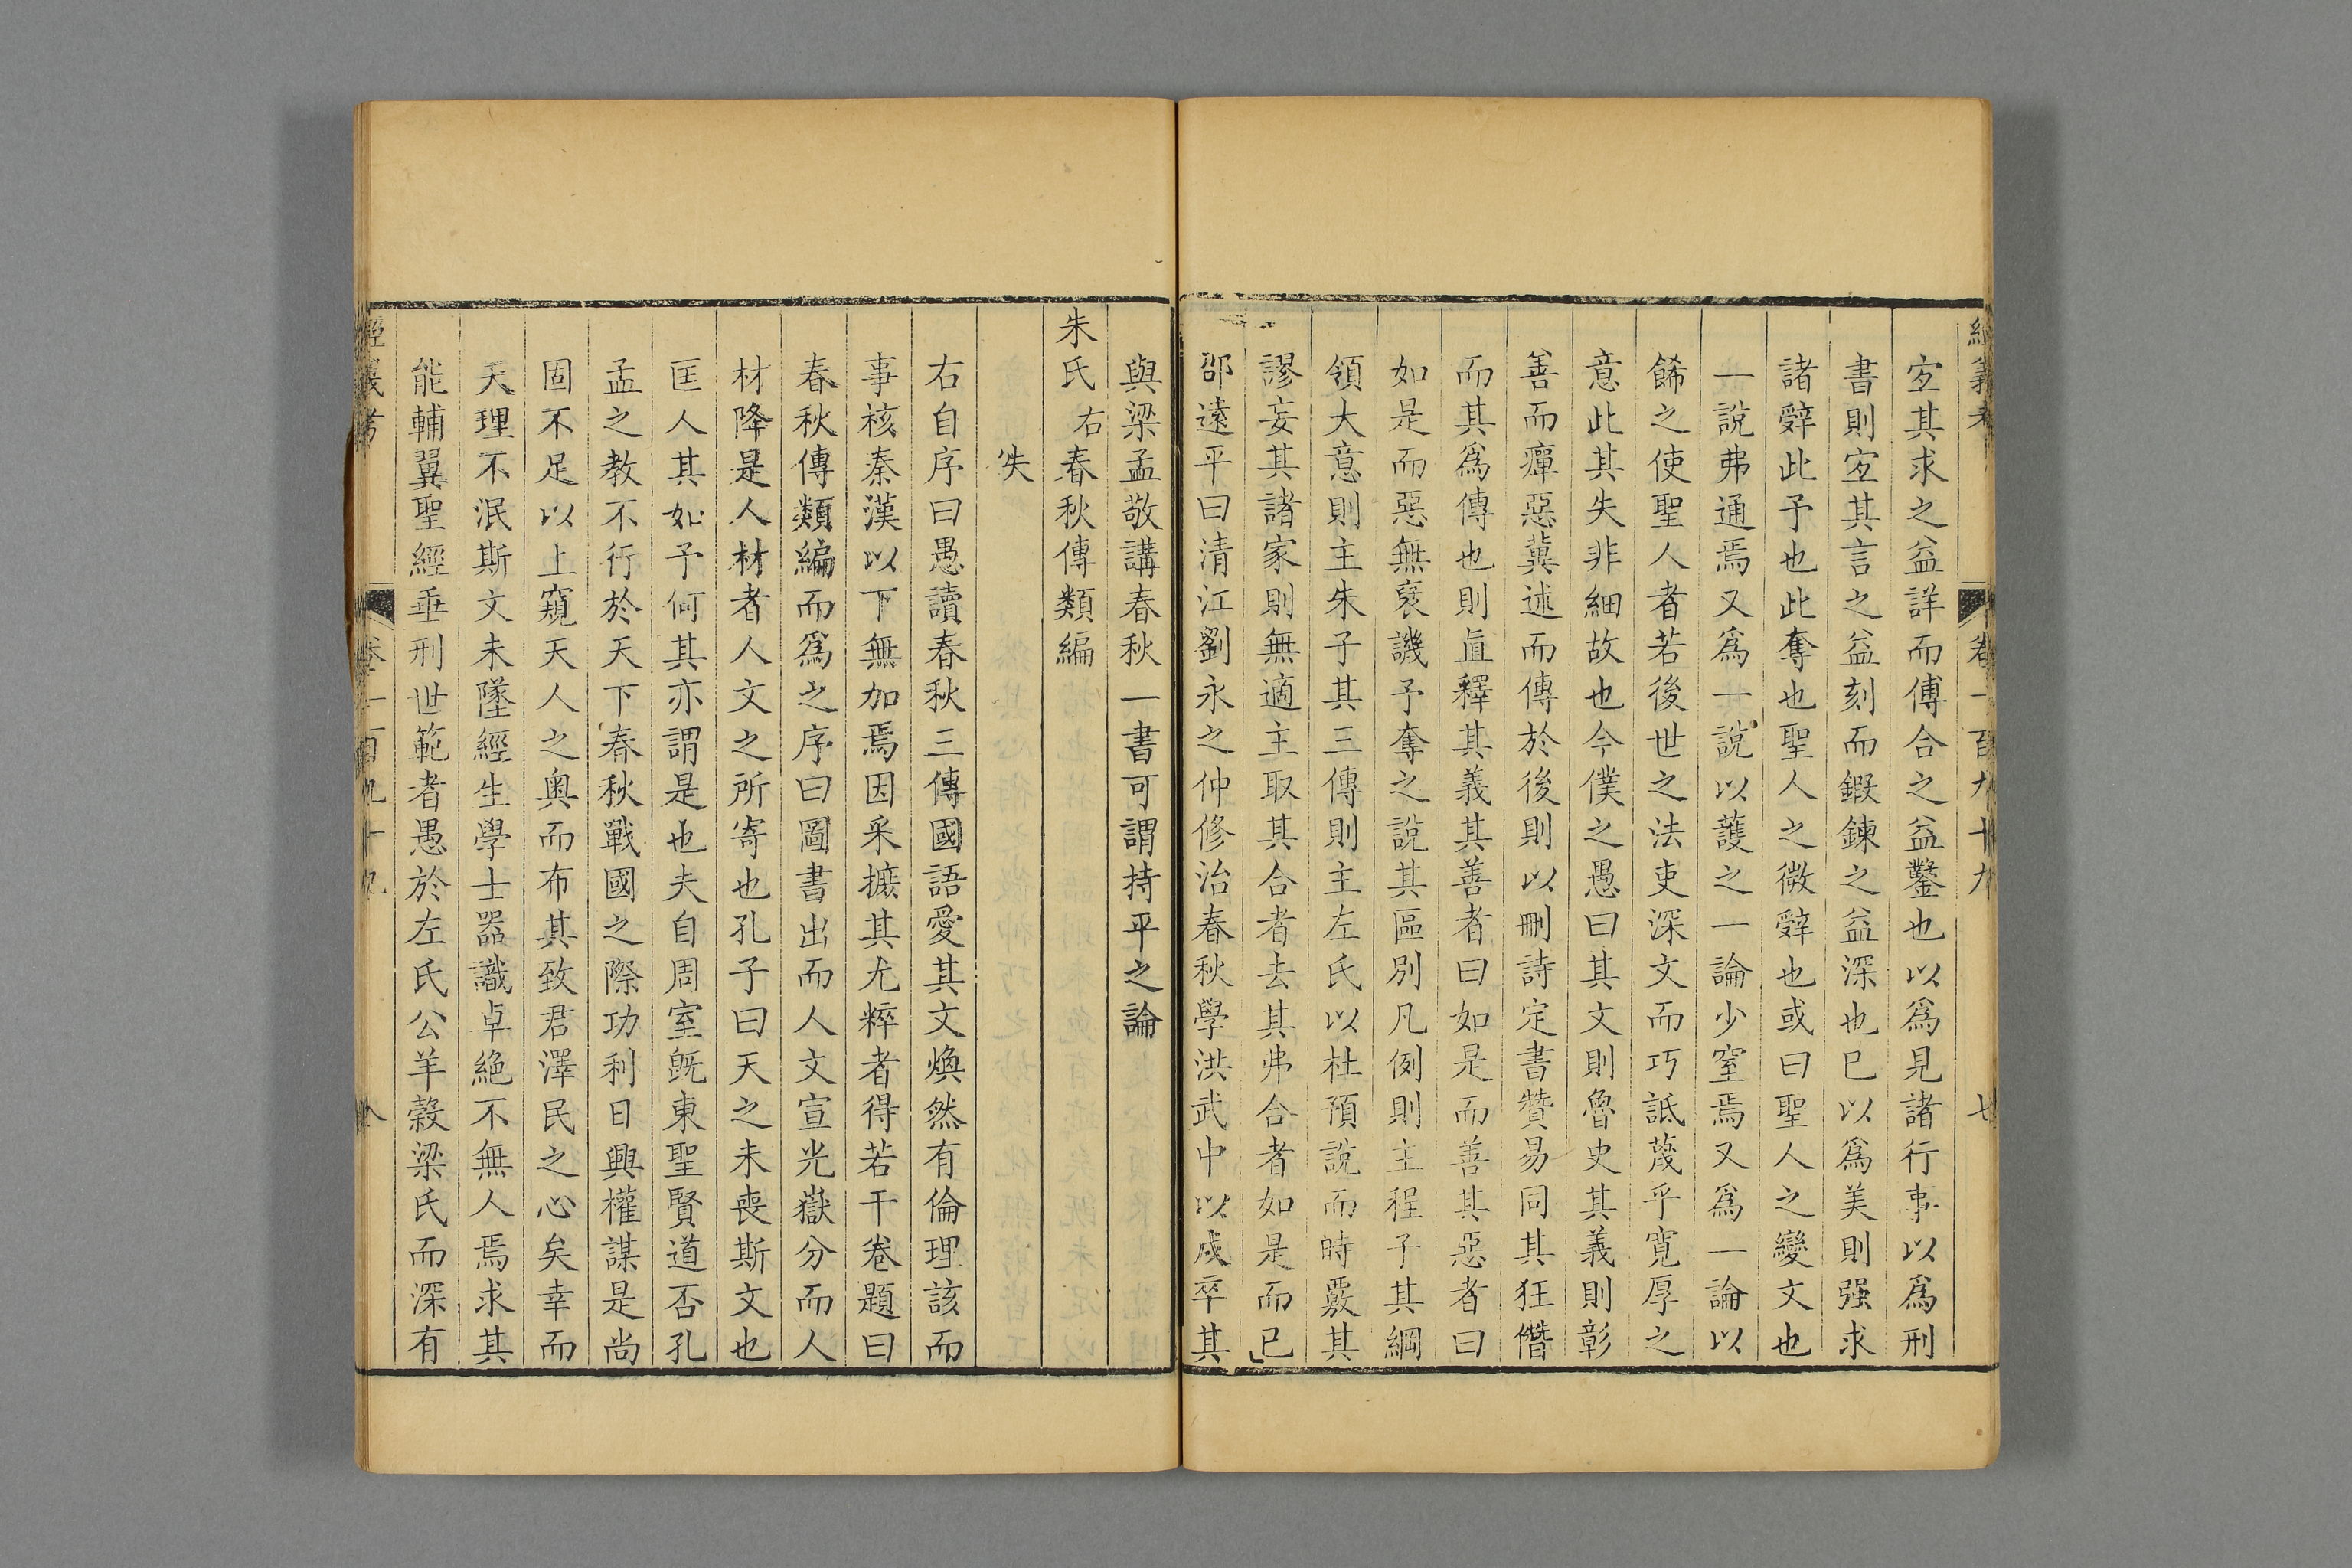 經義考 卷一百九十九 七
宐其求之益詳而傅合之益鑿也以爲見諸行事以爲刑
書則宐其言之益刻而鍛鍊之益深也已以爲美則强求
諸辤此予也此奪也聖人之微辤也或曰聖人之變文也
一說弗通焉又爲一說以護之一論少窒焉又爲一論以
餙之使聖人者若後世之法吏深文而巧詆蔑乎寛厚之
意此其失非細故也今僕之愚曰其文則魯史其義則彰
善而癉惡冀述而傳於後則以刪詩定書贊易同其狂僭
而其爲傳也則直釋其義其善者曰如是而善其惡者曰
如是而惡無褒譏予奪之說其區別凡例則主程子其綱
領大意則主朱子其三傳則主左氏以杜預說而時覈其
謬妄其諸家則無適主取其合者去其弗合者如是而已
邵遠平曰清江劉永之仲修治春秋學洪武中以戍卒其
與梁孟敬講春秋一書可謂持平之論
朱氏右春秋傳類編
佚
右自序曰愚讀春秋三傳國語愛其文煥然有倫理該而
事核秦漢以下無加焉因采摭其尤粹者得若干卷題曰
春秋傳類編而爲之序曰圖書出而人文宣光嶽分而人
材降是人材者人文之所寄也孔子曰天之未喪斯文也
匡人其如予何其亦謂是也夫自周室旣東聖賢道否孔
孟之教不行於天下春秋戰國之際功利日興權謀是尚
固不足以上窺天人之奧而布其致君澤民之心矣幸而
天理不泯斯文未墜經生學士器識卓絶不無人焉求其
能輔翼聖經垂刑世範者愚於左氏公羊穀梁氏而深有
經義考 卷一百九十九 八